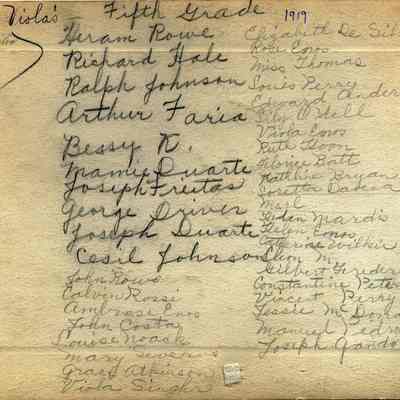 Viola's
Fifth Grade 1919
Hiram Rowe
Richard Hale
Ralph Johnson
Arthur Faria
Bessy K.
Mamie Duarte
Joseph Freitas
George Driver
Joseph Duarte
Cecil Johnson
John Rowe
Calvin Rossi
Ambrose Enos
John Costa
Louise Noack
Mary
Grace Atkinson
Viola Singler
Elizabeth De
Rose Enos
Miss Thomas
Louis Perry
Edward
Lily O'dell
Viola Enos
Ruth Hoon
Batt
Bryan
Loretta
Merl
Helen Enos
Catherine Wilkie
M.
Gilbert
Constantine
Vincent Perry
Jessie
Manuel
Joseph